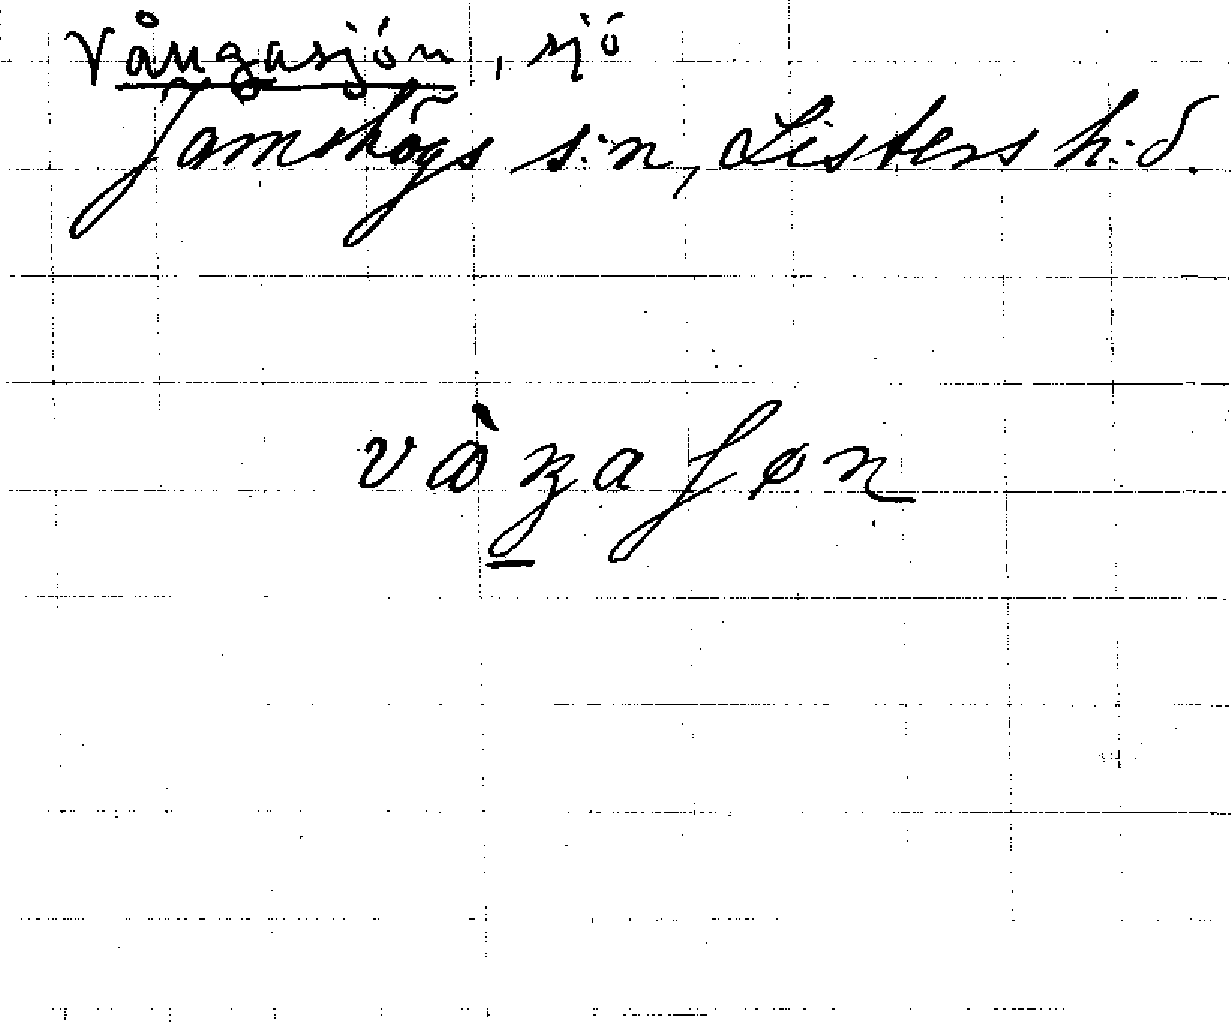 Vångasjön, sjö
Jämshögs s:n, Listers h:d.